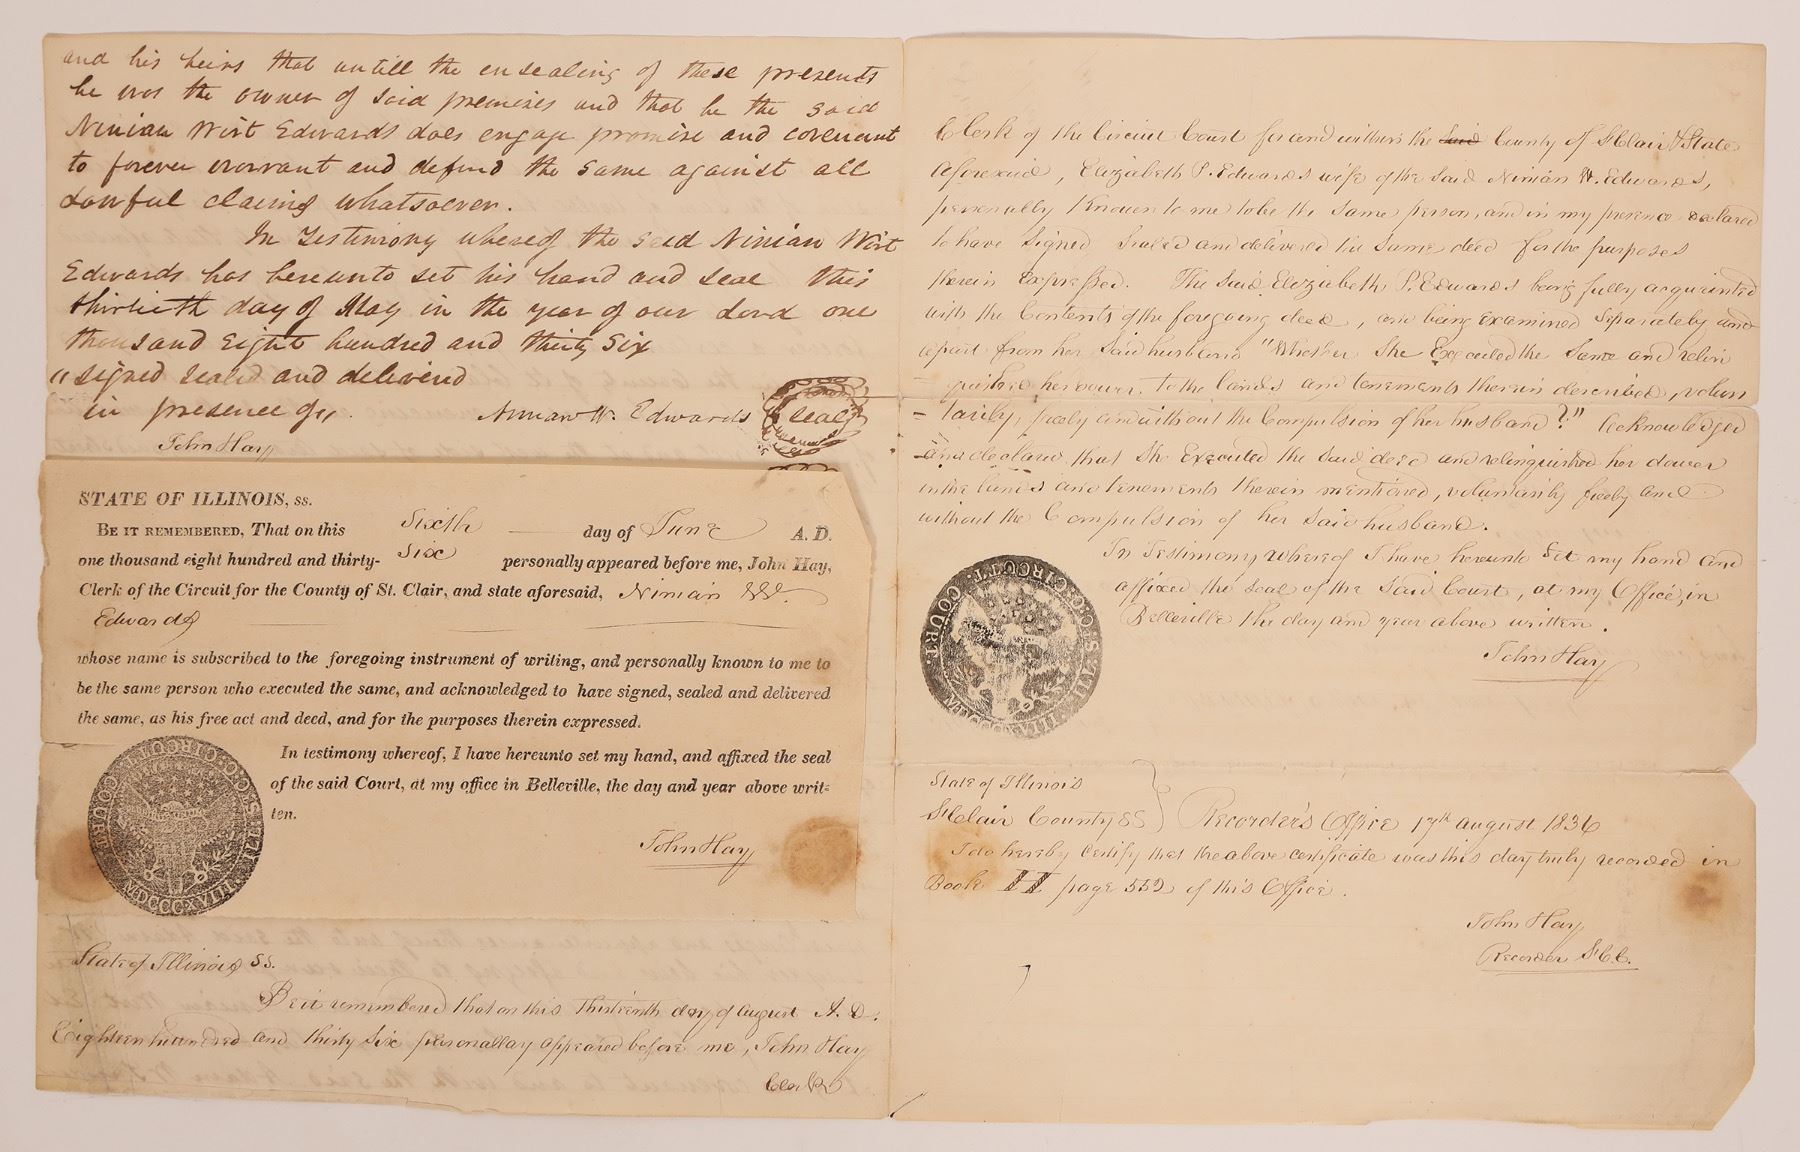 and his heirs that untill the ensealing of these presents
he was the owner of said premises and that he the said
Ninian Wirt Edwards does engage promise and covenant
to forever warrant and defend the same against all
Lawful claims whatsoever.
In Testimony whereof the said Ninian Wirt
Edwards has hereunto set his hand and seal this
thirtieth day of May in the year of our Lord one
thousand eight hundred and thirty six
"signed sealed and delivered
in presence of,,.
Ninian W. Edwards seal
John Hay
STATE OF ILLINOIS, ss.
BE IT REMEMBERED, That on this Sixth day of June A. D.
one thousand eight hundred and thirty- Six personally appeared before me, John Hay,
Clerk of the Circuit for the County of St. Clair, and state aforesaid, Ninian W.
Edwards
whose name is subscribed to the foregoing instrument of writing, and personally known to me to
be the same person who executed the same, and acknowledged to have signed, sealed and delivered
the same, as his free act and deed, and for the purposes therein expressed.
In testimony whereof, I have hereunto set my hand, and affixed the seal
of the said Court, at my office in Belleville, the day and year above writ-
ten.
John Hay
CIRCUIT COURT
MDCCCXVIII
State of Illinois SS.
Be it remembered that on this Thirteenth day of August A. D.
Eighteen hundred and thirty Six personallay appeared before me, John Hay
Clerk
Clerk of the Circuit Court for and within the said County of St Clair & State
aforesaid, Elizabeth P. Edwards wife of the said Ninian W. Edwards,
personally Known to me to be the same person, and in my presence declared
to have signed sealed and delivered the same deed for the purposes
therein expressed. The said Elizabeth P. Edwards being fully acquainted
with the Contents of the foregoing deed, and being examined separately and
apart from her said husband "Whether She Executed the same and relin
-quished her dower, to the lands and tenements therein described, volun
-tarily, freely and without the Compulsion of her husband?" Acknowledged
and declared that She Executed the said deed and relinquished her dower
in the lands and tenements therein mentioned, voluntarily freely and
without the Compulsion of her said husband.
In Testimony whereof I have hereunto set my hand and
affixed the seal of the said Court, at my Office, in
Belleville the day and year above written.
John Hay
CIRCUIT COURT
State of Illinois
St Clair County SS } Recorder's Office 17th august 1836
I do hereby certify that the above certificate was this day truly recorded in
Book II page 552 of this Office.
John Hay
Recorder St C. C.